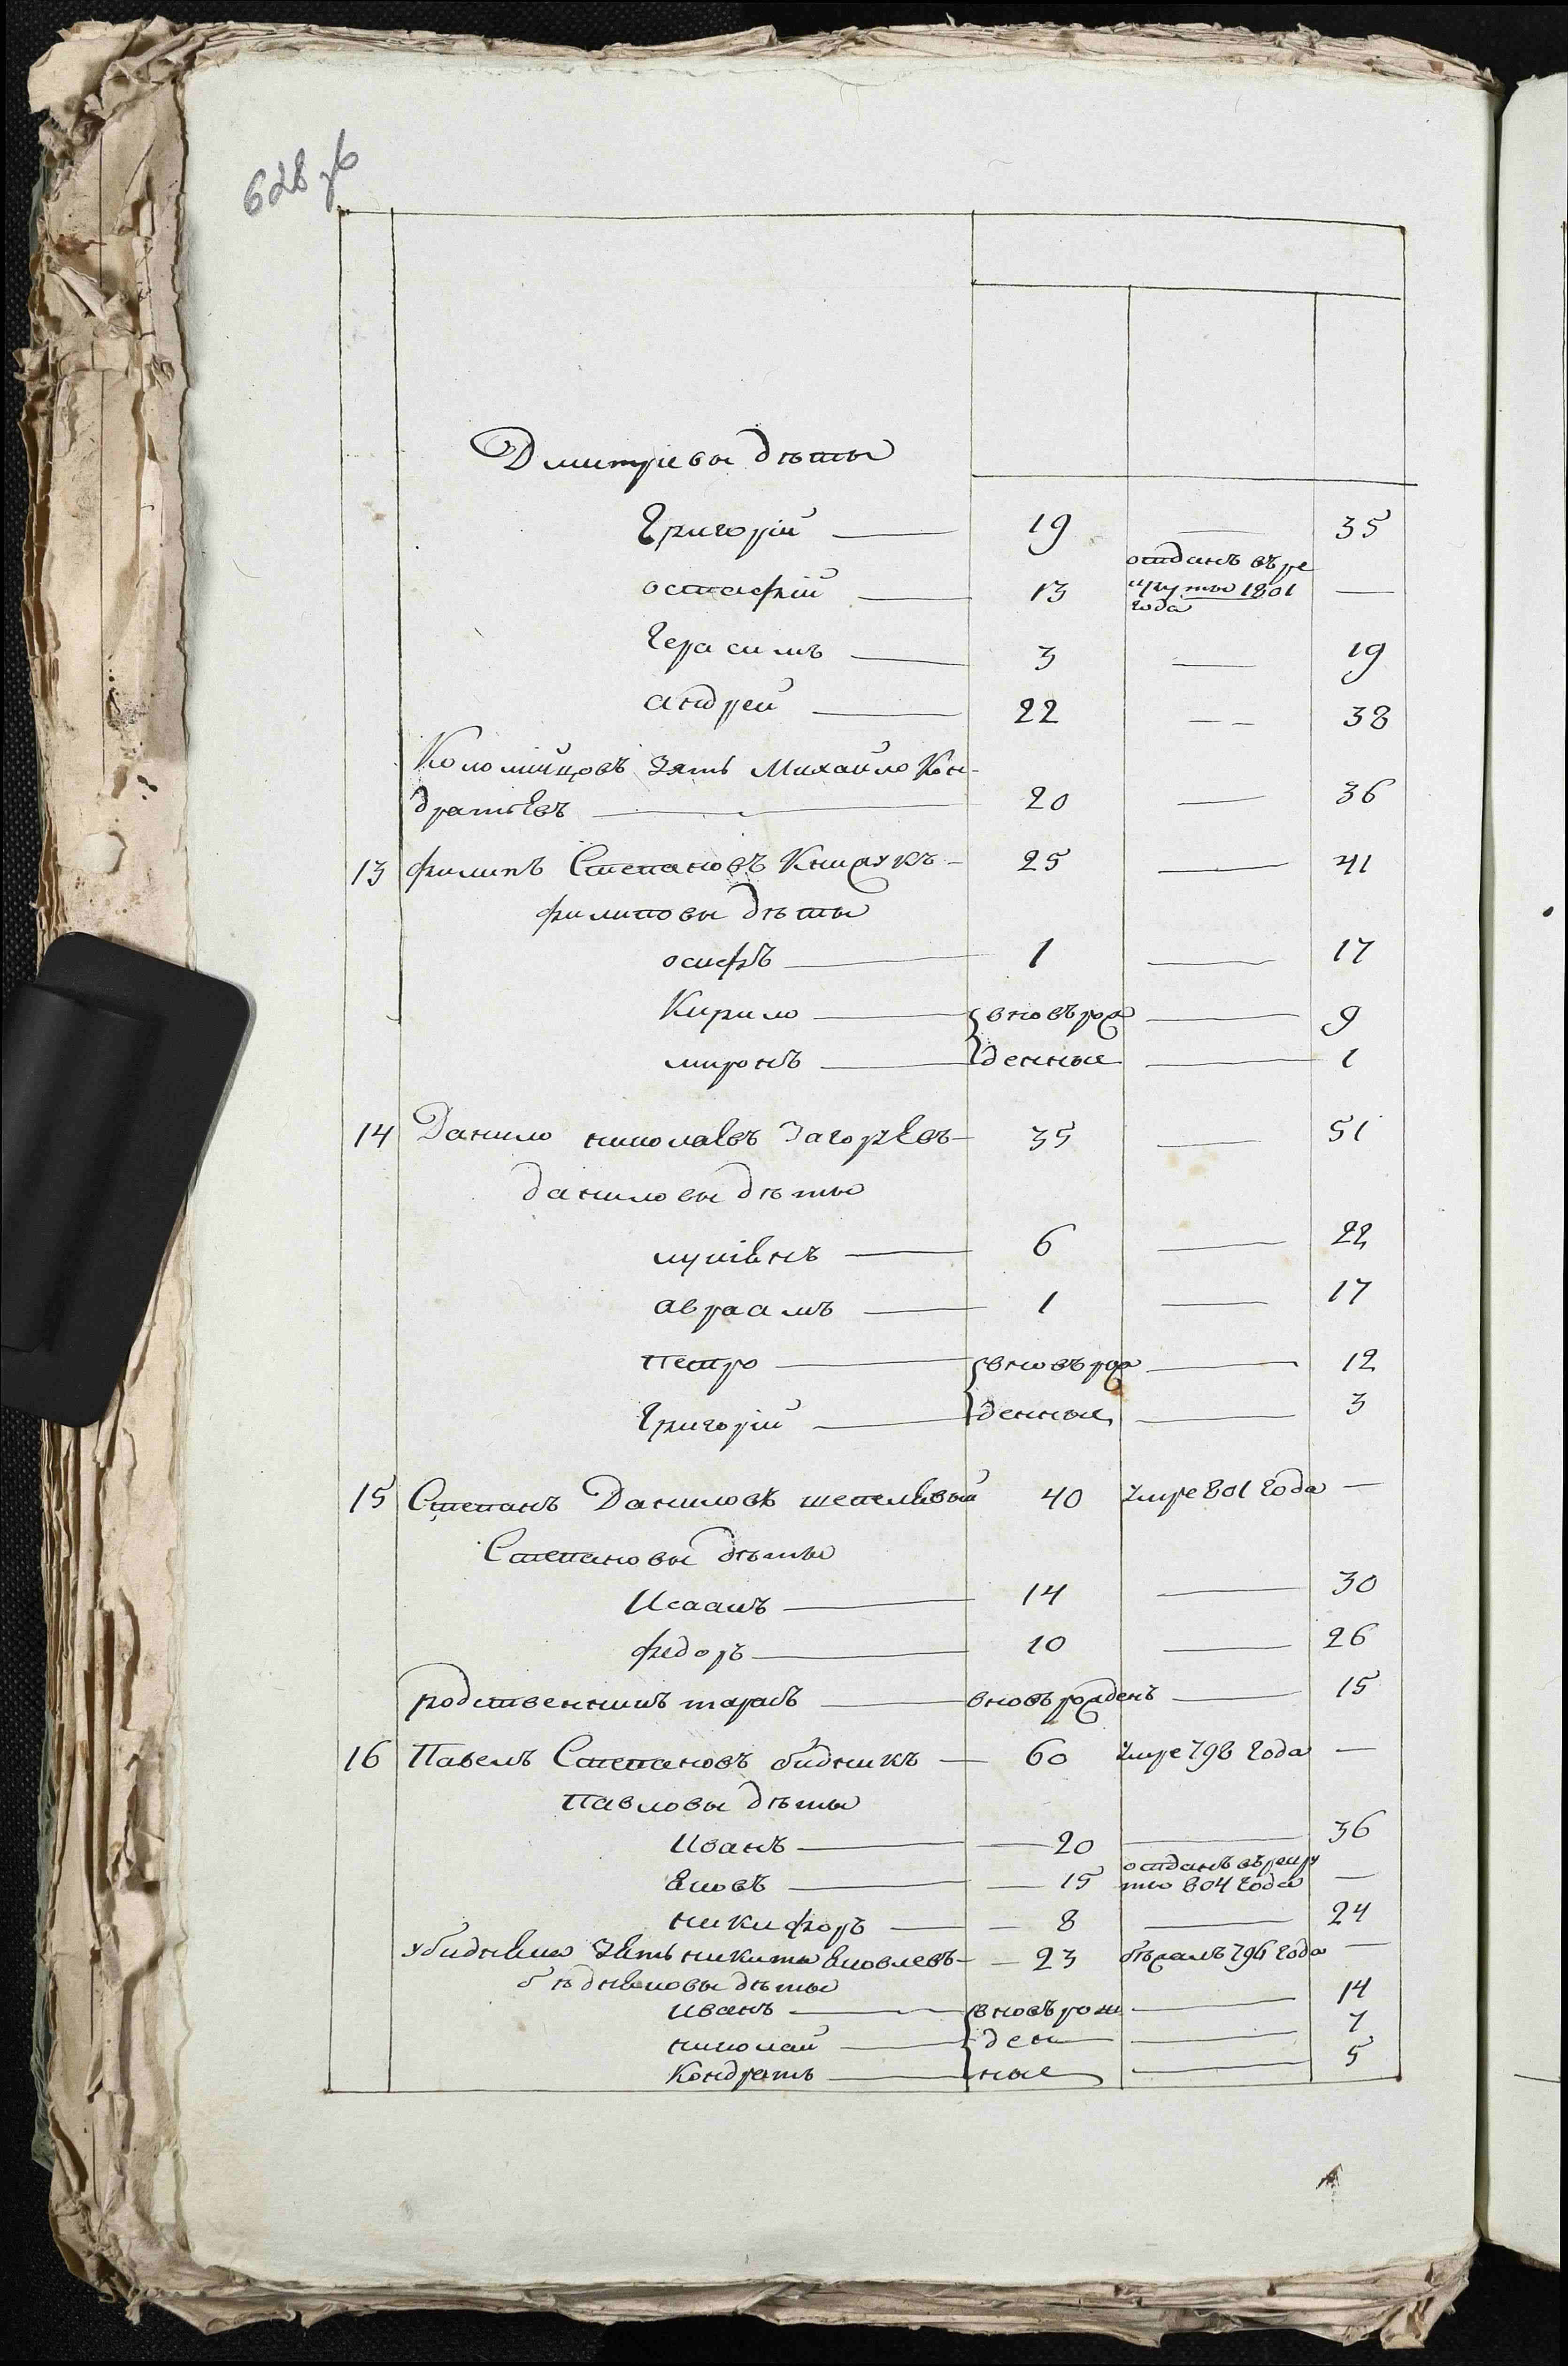 628 об
Дмитриевы дѣты
Григорій — 19 — 35
остафій — 13 отданъ въ ре
круты 1801 —
года
Герасимъ — 3 — 19
андрей — 22 — 38
Коломийцовъ зять Михайло Кон-
дратьевъ — 20 — 36
13 филипъ Степановъ — 25 — 41
филиповы дѣты
осифъ — 1 — 17
Кирило — вновърож — 9
миронъ — денные — 1
14 Данило николаевъ Загорѣевъ — 35 — 51
даниловы дѣты
лукіянъ — 6 — 22
авраамъ — 1 — 17
петро — вновърож — 12
Григорій — денные — 3
15 Степанъ Даниловъ шепелявый 40 умре 801 года —
Степановы дѣты
Исаакъ — 14 — 30
федоръ — 10 — 26
родственникъ тарасъ — вновърожденъ — 15
16 Павелъ Степановъ бидникъ — 60 умре 798 года —
павловы дѣты
Иванъ — 20 — 36
отданъ върекру
яковъ — 15 ты 804 года —
никифоръ — 8 — 24
зять никита яковлевъ — 23 бѣжалъ 796 года —
дѣты
иванъ — вновърож — 14
николай — ден — 7
Кондратъ — ные — 5